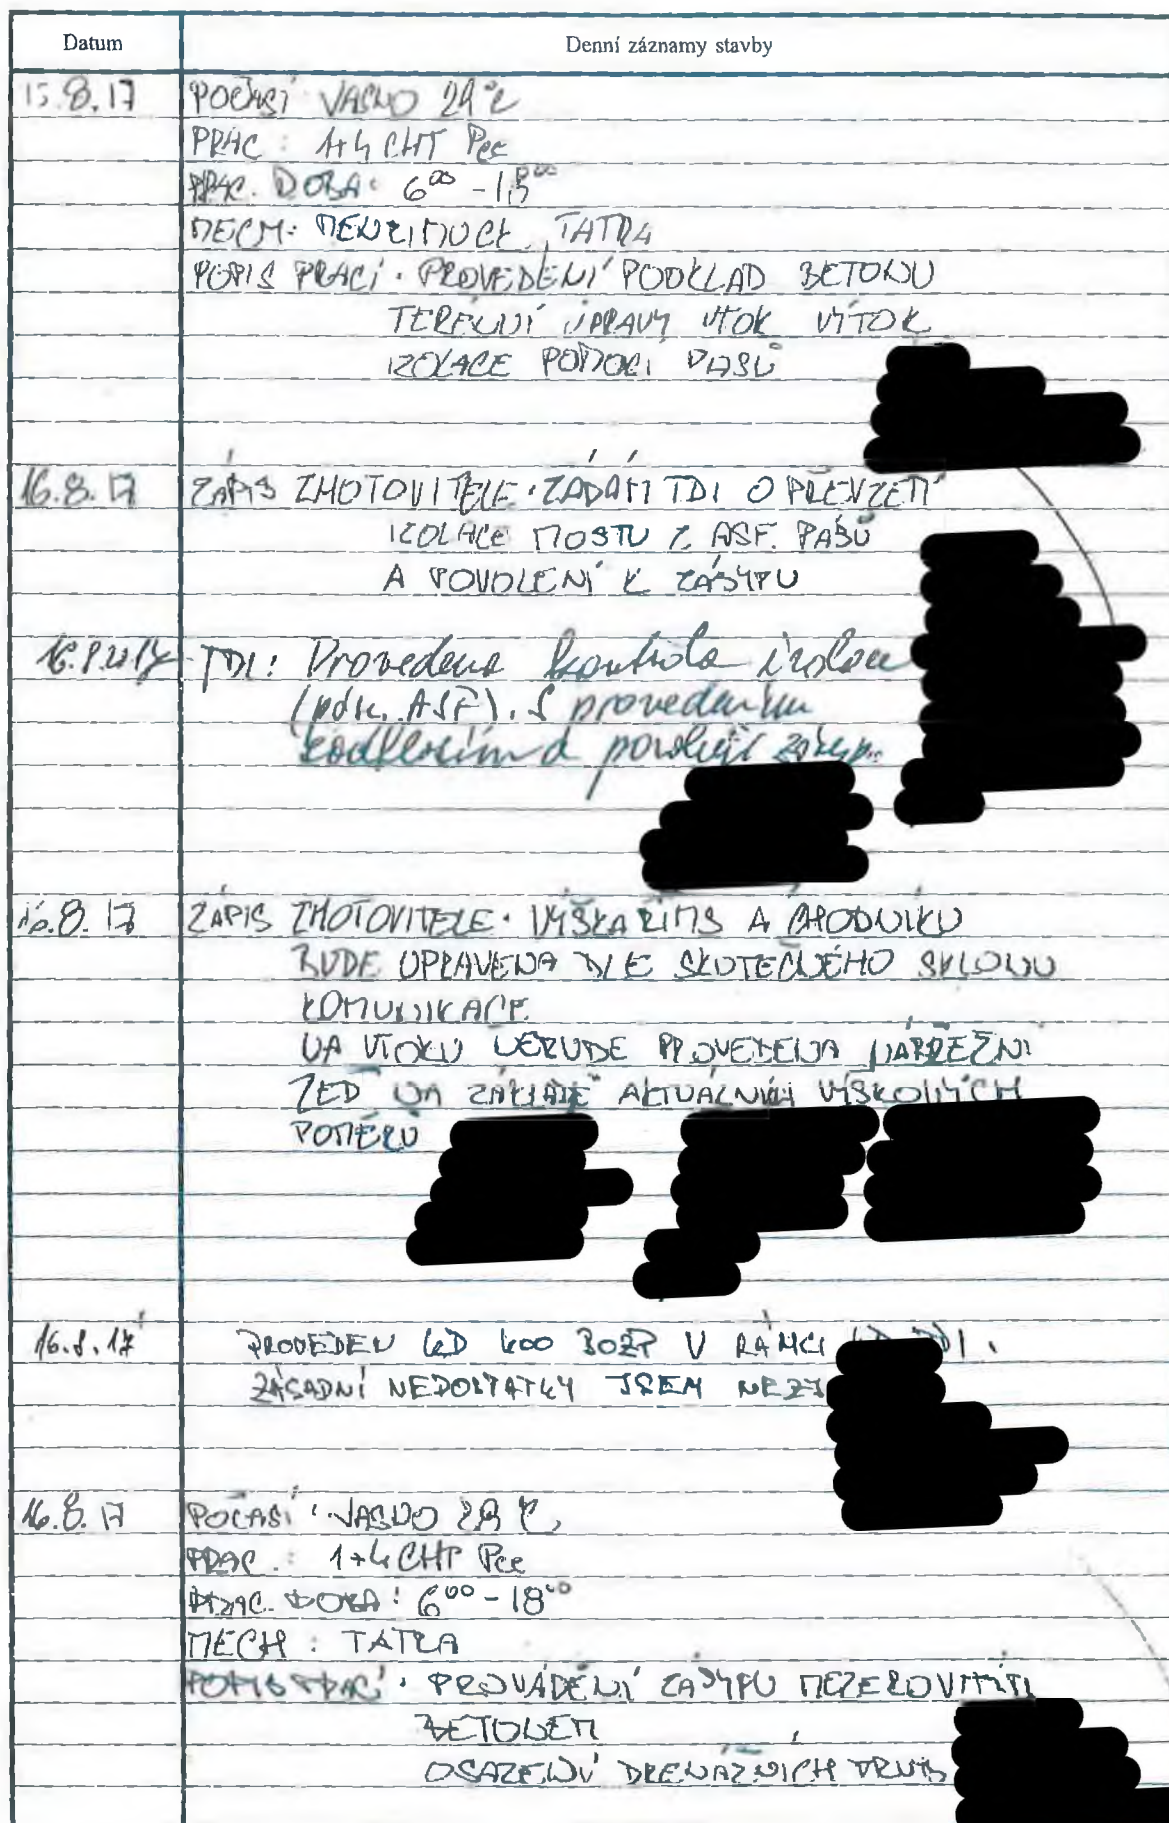 Datum Denní záznamy stavby
15.8.17 POČASÍ JASNO 29°C
PRAC: 1+4 CHT
PRAC. DOBA: 6⁰⁰ - 18⁰⁰
MECH: MENZIMUCK, TATRA
POPIS PRACÍ: PROVEDENÍ PODKLAD BETONU
TERÉNNÍ ÚPRAVY VTOK VÝTOK
IZOLACE POMOCÍ PASŮ
16.8.17 ZÁPIS ZHOTOVITELE: ŽÁDÁM TDI O PŘEVZETÍ
IZOLACE MOSTU Z ASF. PÁSŮ
A POVOLENÍ K ZÁSYPU
16.8.2017 TDI: Provedena kontrola izolace
ASF). S provedením
souhlasím a povoluji zásyp.
16.8.17 ZÁPIS ZHOTOVITELE: VÝŠKA ŘÍMS A CHODNÍKU
BUDE UPRAVENA DLE SKUTEČNÉHO SKLONU
KOMUNIKACE.
NA VTOKU NEBUDE PROVEDENA NÁBŘEŽNÍ
ZEĎ NA ZÁKLADĚ AKTUÁLNÍCH VÝŠKOVÝCH
POMĚRŮ
16.8.17 PROVEDEN KD KOO BOZP V RÁMCI
ZÁSADNÍ NEDOSTATKY JSEM NEZJ
16.8.17 POČASÍ: JASNO 28°C,
PRAC.: 1+4 CHT
PRAC. DOBA: 6⁰⁰ - 18⁰⁰
MECH: TATRA
POPIS PRACÍ: PROVÁDĚNÍ ZÁSYPU MEZEROVITÝM
BETONEM
OSAZENÍ DRENÁŽNÍCH TRUB